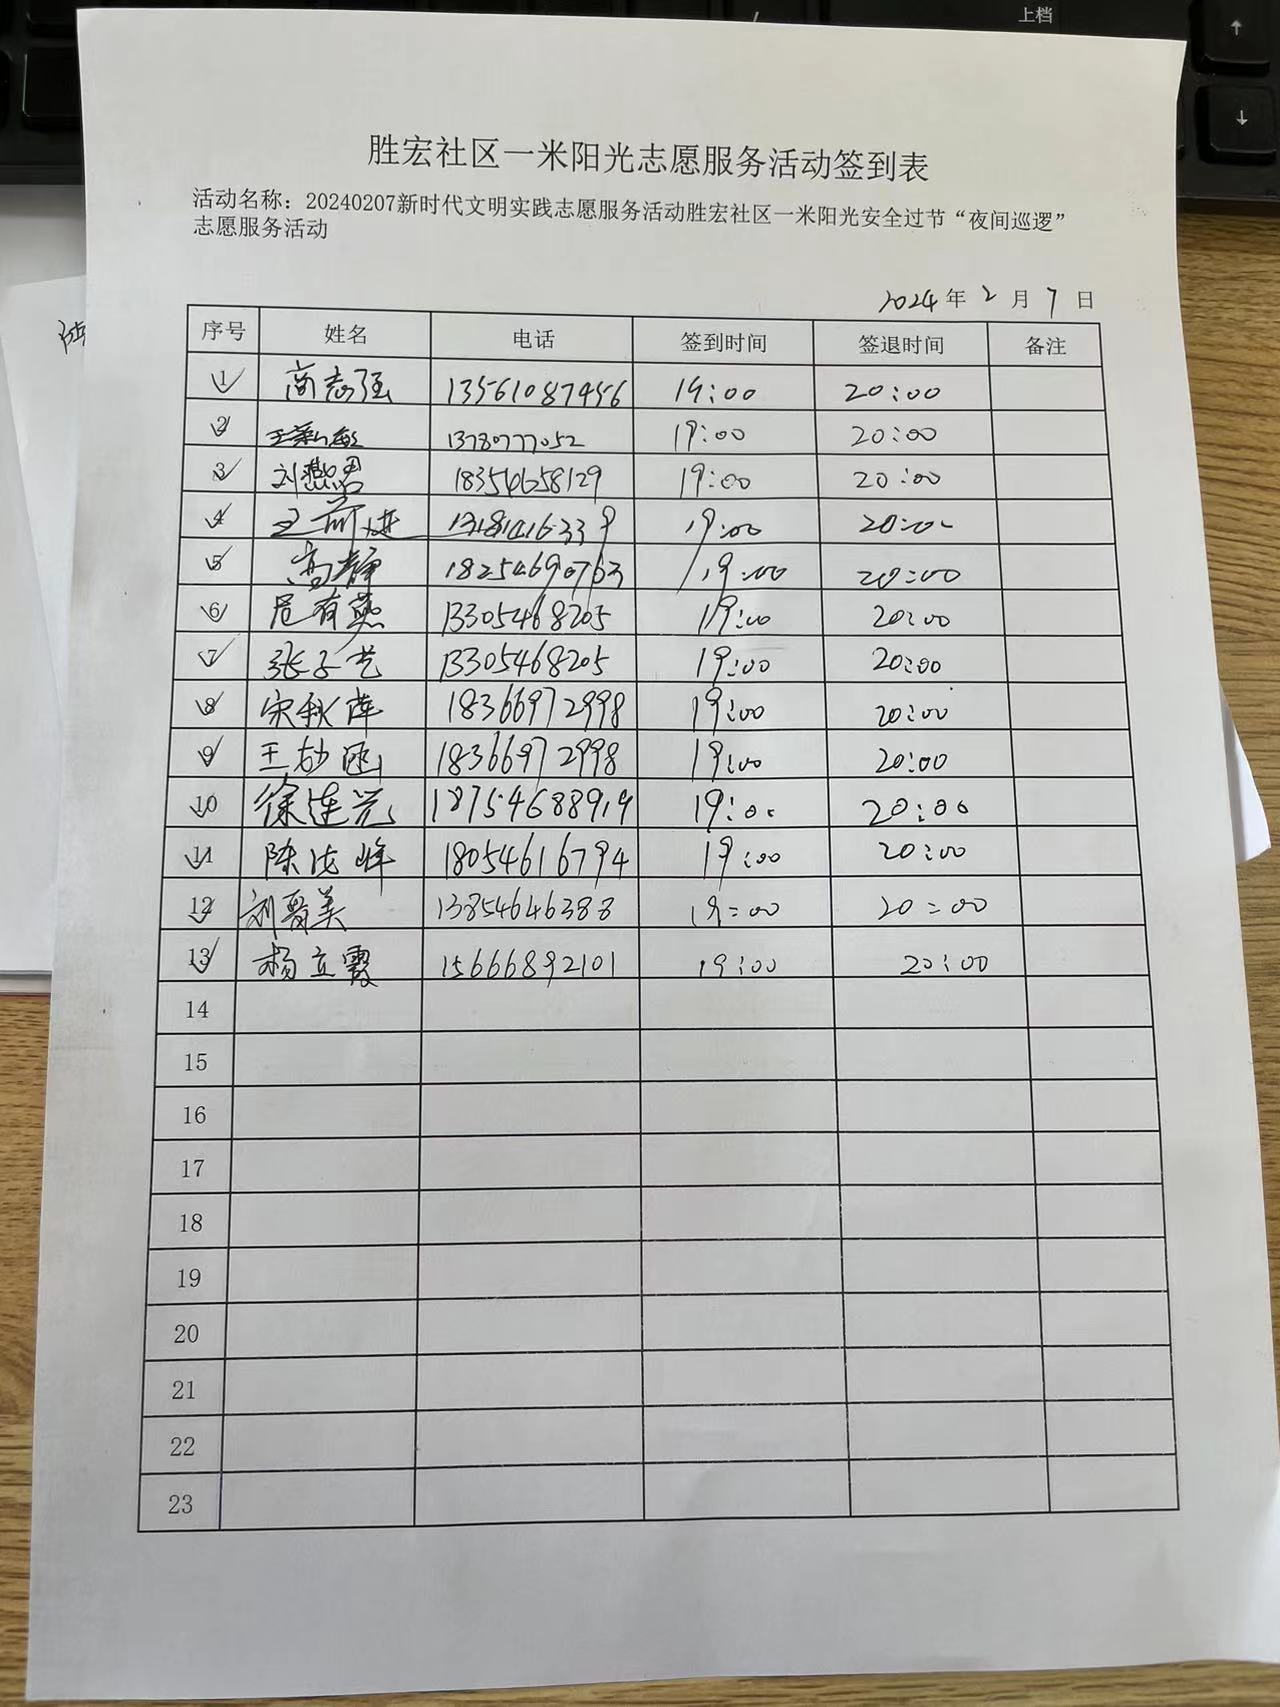 上档
胜宏社区一米阳光志愿服务活动签到表
活动名称：20240207新时代文明实践志愿服务活动胜宏社区一米阳光安全过节“夜间巡逻”
志愿服务活动
2024年 2 月 7 日
序号 姓名 电话 签到时间 签退时间 备注
1 商志强 13561087456 19:00 20:00
2 13780777052 19:00 20:00
3 刘慧君 18354658129 19:00 20:00
4 王前进 19:00 20:00
5 高静 18254690763 19:00 20:00
6 13305468205 19:00 20:00
7 张子艺 13305468205 19:00 20:00
8 宋秋萍 18366972998 19:00 20:00
9 王妙涵 18366972998 19:00 20:00
10 徐连芝 18754688919 19:00 20:00
11 陈法峰 18054616794 19:00 20:00
12 13854646388 19:00 20:00
13 杨立霞 15666892101 19:00 20:00
14
15
16
17
18
19
20
21
22
23